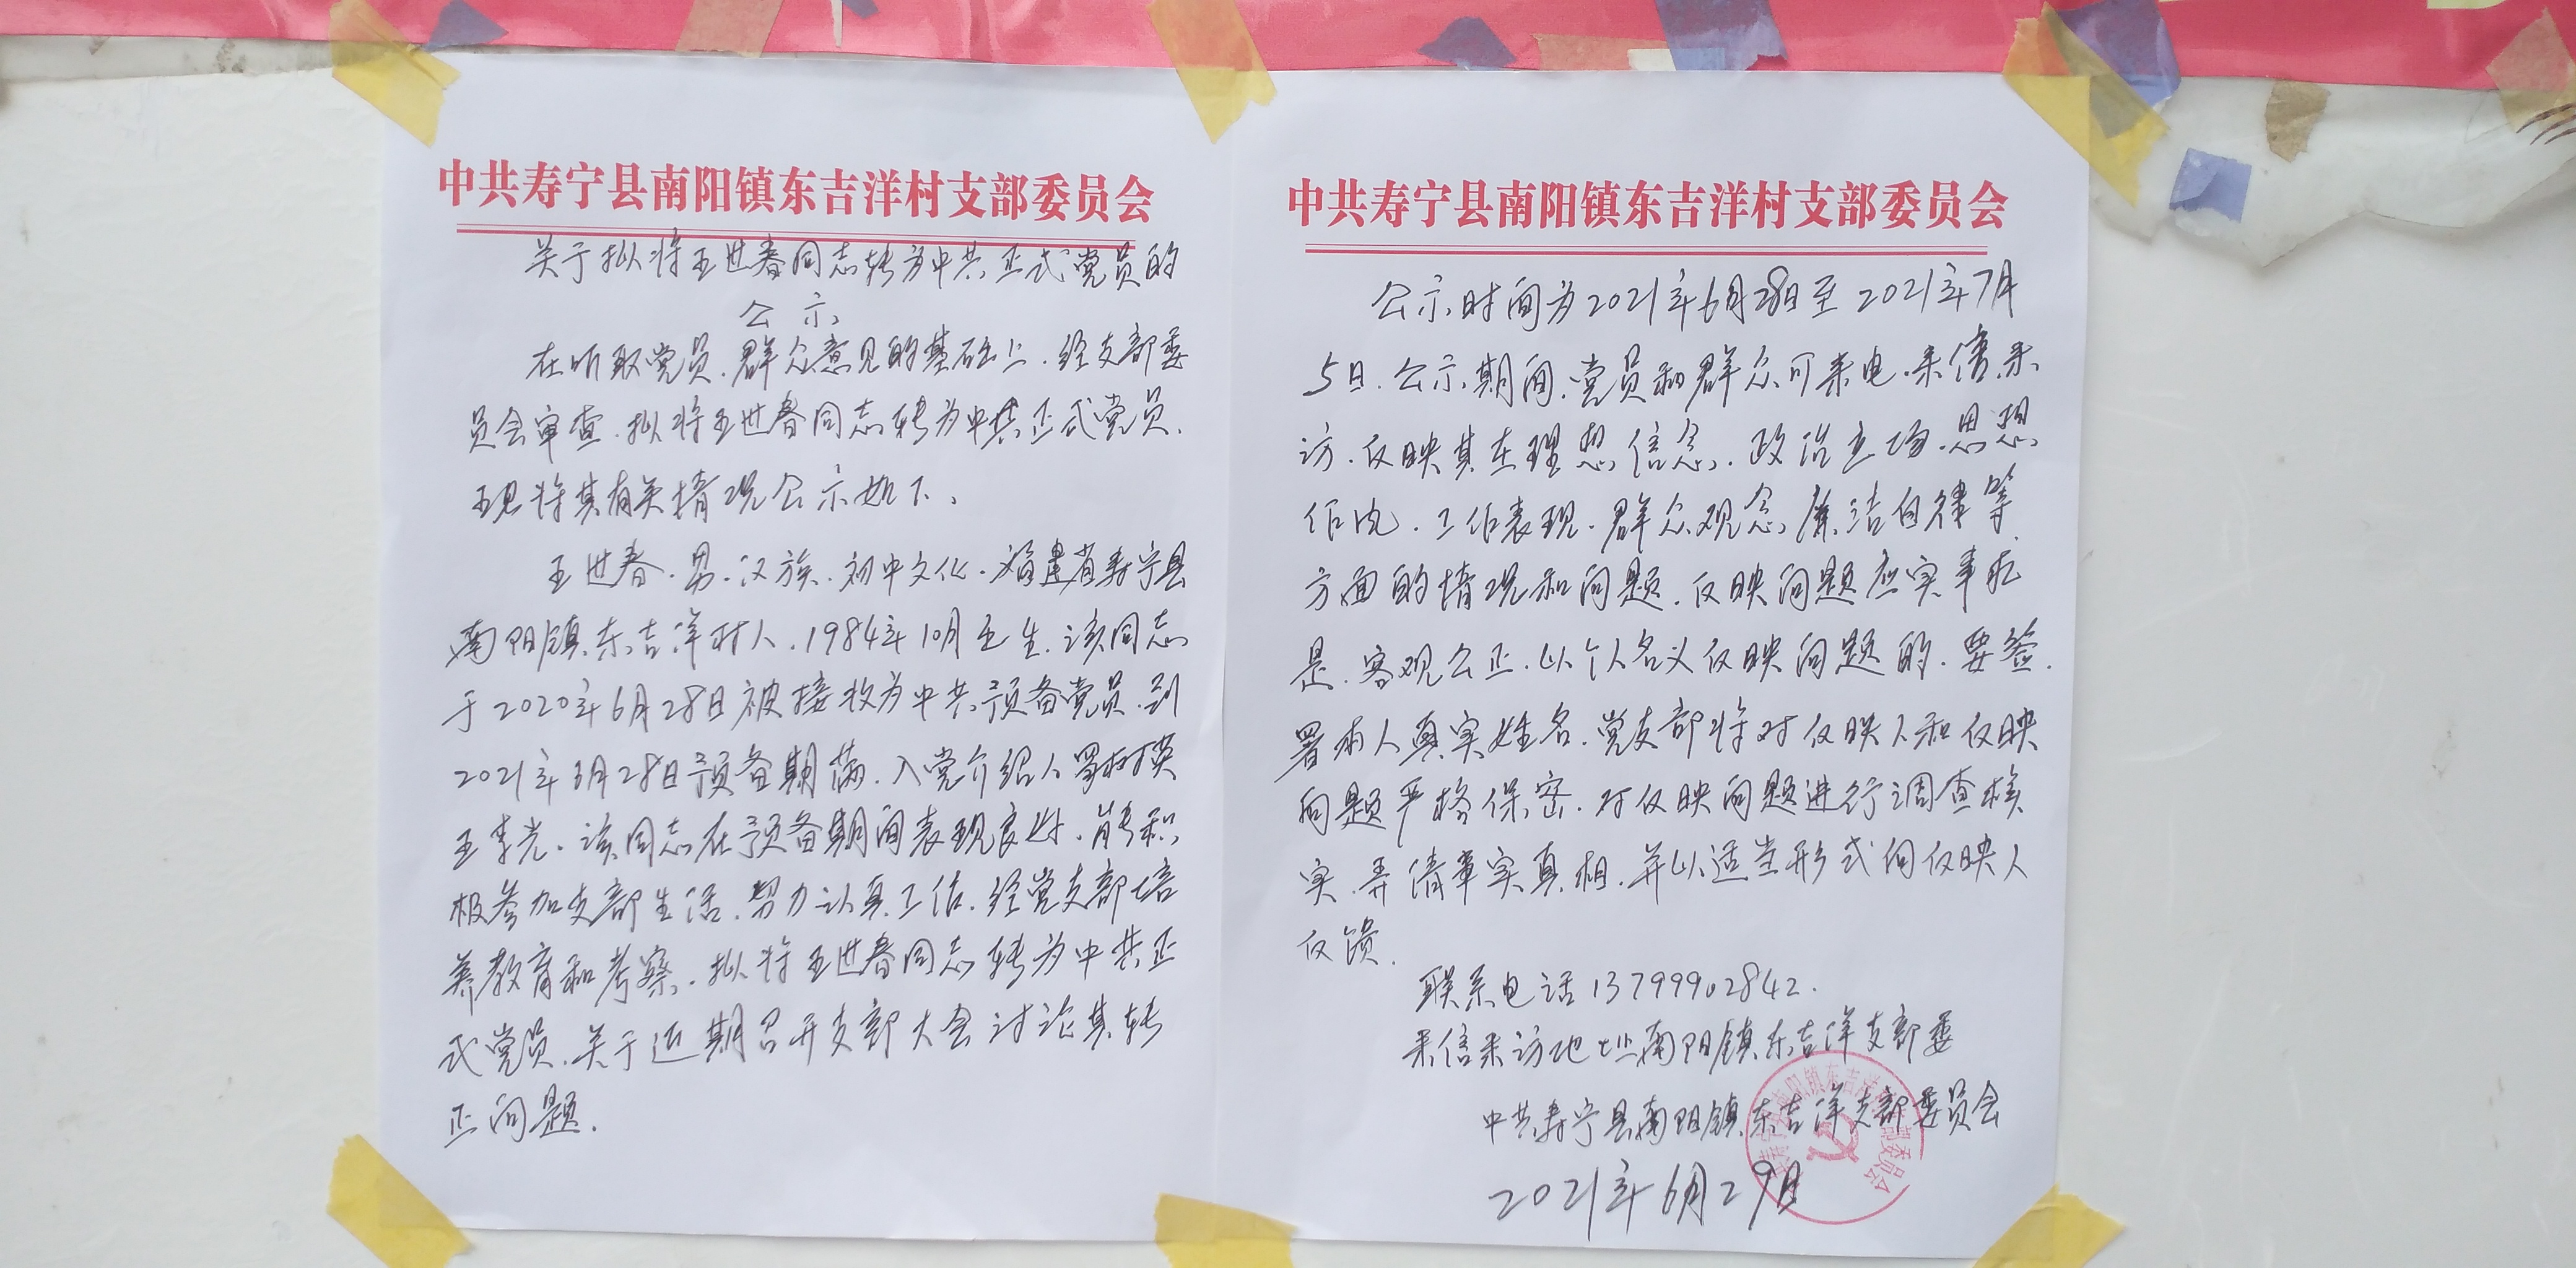 中共寿宁县南阳镇东吉洋村支部委员会
关于拟将王世春同志转为中共正式党员的
公示
在听取党员、群众意见的基础上、经支部委
员会审查、拟将王世春同志转为中共正式党员、
现将其有关情况公示如下、
王世春、男、汉族、初中文化、福建省寿宁县
南阳镇东吉洋村人、1984年10月出生、该同志
于2020年6月28日被接收为中共预备党员、到
2021年6月28日预备期满、入党介绍人
王李光、该同志在预备期间表现良好、能积
极参加支部生活、努力认真工作、经党支部培
养教育和考察、拟将王世春同志转为中共正
式党员、关于近期召开支部大会讨论其转
正问题.
中共寿宁县南阳镇东吉洋村支部委员会
公示时间为2021年6月28日至2021年7月
5日、公示期间、党员和群众可来电、来信、来
访、反映其在理想信念、政治立场、思想
作风、工作表现、群众观念、廉洁自律等
方面的情况和问题、反映问题应实事求
是、客观公正、以个人名义反映问题的、要签
署本人真实姓名、党支部将对反映人和反映
问题严格保密、对反映问题进行调查核
实、弄清事实真相、并以适当形式向反映人
反馈.
联系电话13799902842.
来信来访地址南阳镇东吉洋支部委
中共寿宁县南阳镇东吉洋支部委员会
2021年6月29日